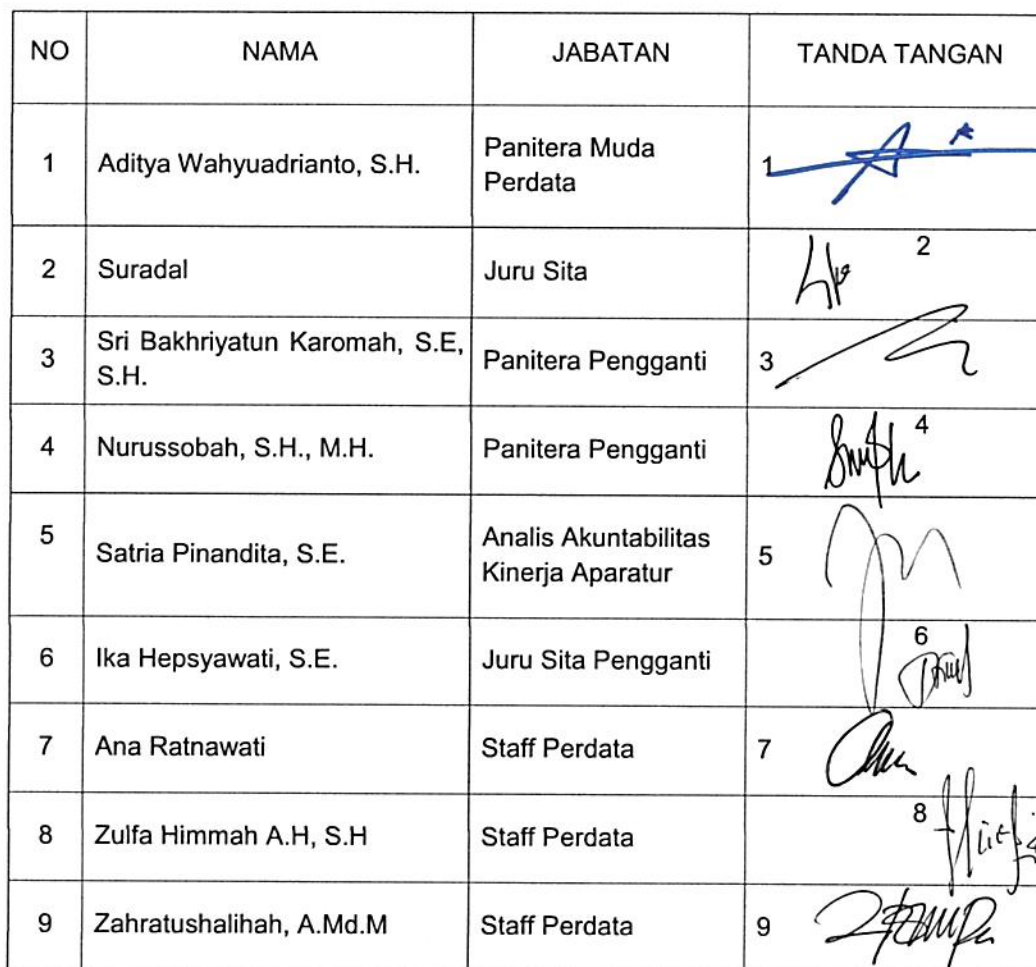 NO NAMA JABATAN TANDA TANGAN
1 Aditya Wahyuadrianto, S.H. Panitera Muda Perdata 1
2 Suradal Juru Sita 2
3 Sri Bakhriyatun Karomah, S.E, S.H. Panitera Pengganti 3
4 Nurussobah, S.H., M.H. Panitera Pengganti 4
5 Satria Pinandita, S.E. Analis Akuntabilitas Kinerja Aparatur 5
6 Ika Hepsyawati, S.E. Juru Sita Pengganti 6
7 Ana Ratnawati Staff Perdata 7
8 Zulfa Himmah A.H, S.H Staff Perdata 8
9 Zahratushalihah, A.Md.M Staff Perdata 9